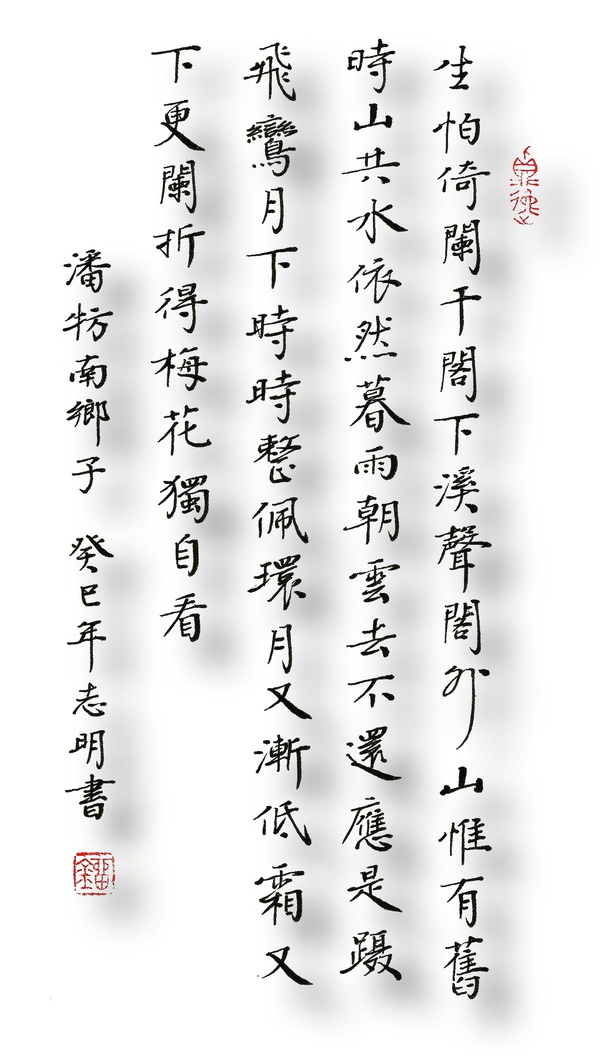 生怕倚闌干閣下溪聲閣外山惟有舊
時山共水依然暮雨朝雲去不還應是蹑
飛鸞月下時時整佩環月又漸低霜又
下更闌折得梅花獨自看
潘牥南鄉子 癸巳年志明書